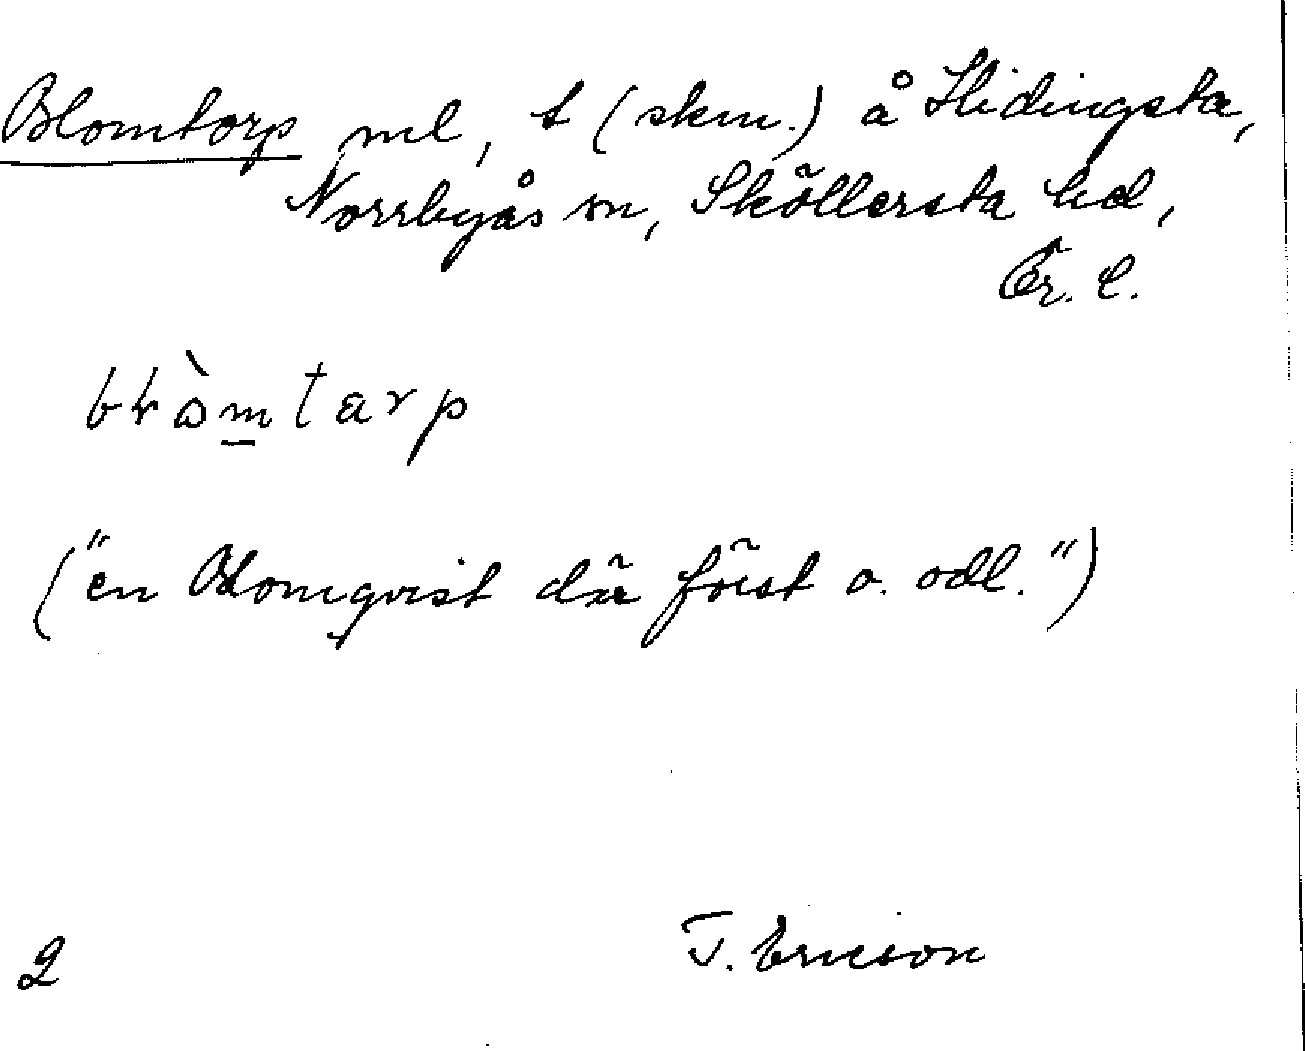 Blomtorp ml, t (skm.) å Hidingsta,
Norrbyås sn, Sköllersta hd,
Ör. l.
("en Blomqvist där först o. odl.")
2
T. Ericson